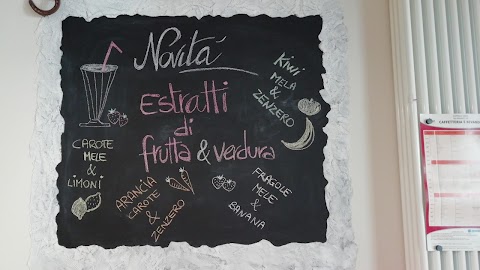 Novità
Estratti
di
frutta & verdura
KIWI
MELA
&
ZENZERO
CAROTE
MELE
&
LIMONI
ARANCIA
CAROTE
&
ZENZERO
FRAGOLE
MELE
&
BANANA